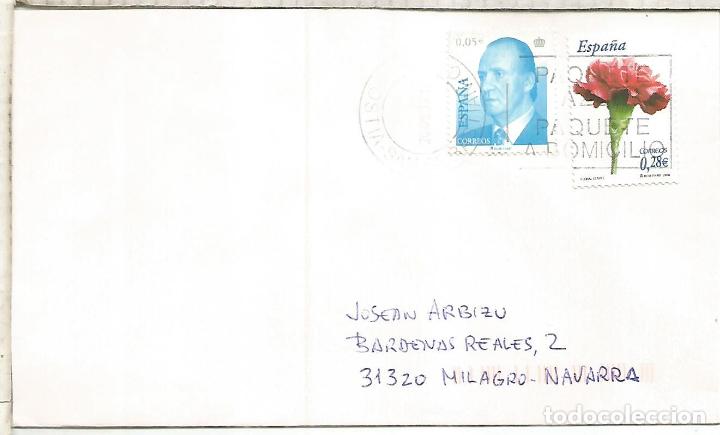 0,05€
ESPAÑA
CORREOS
España
CORREOS
0,28€
PAQUETE
AZUL
PAQUETE
A DOMICILIO
JOSEAN ARBIZU
BARDENAS REALES, 2
31320 MILAGRO-NAVARRA
todocoleccion